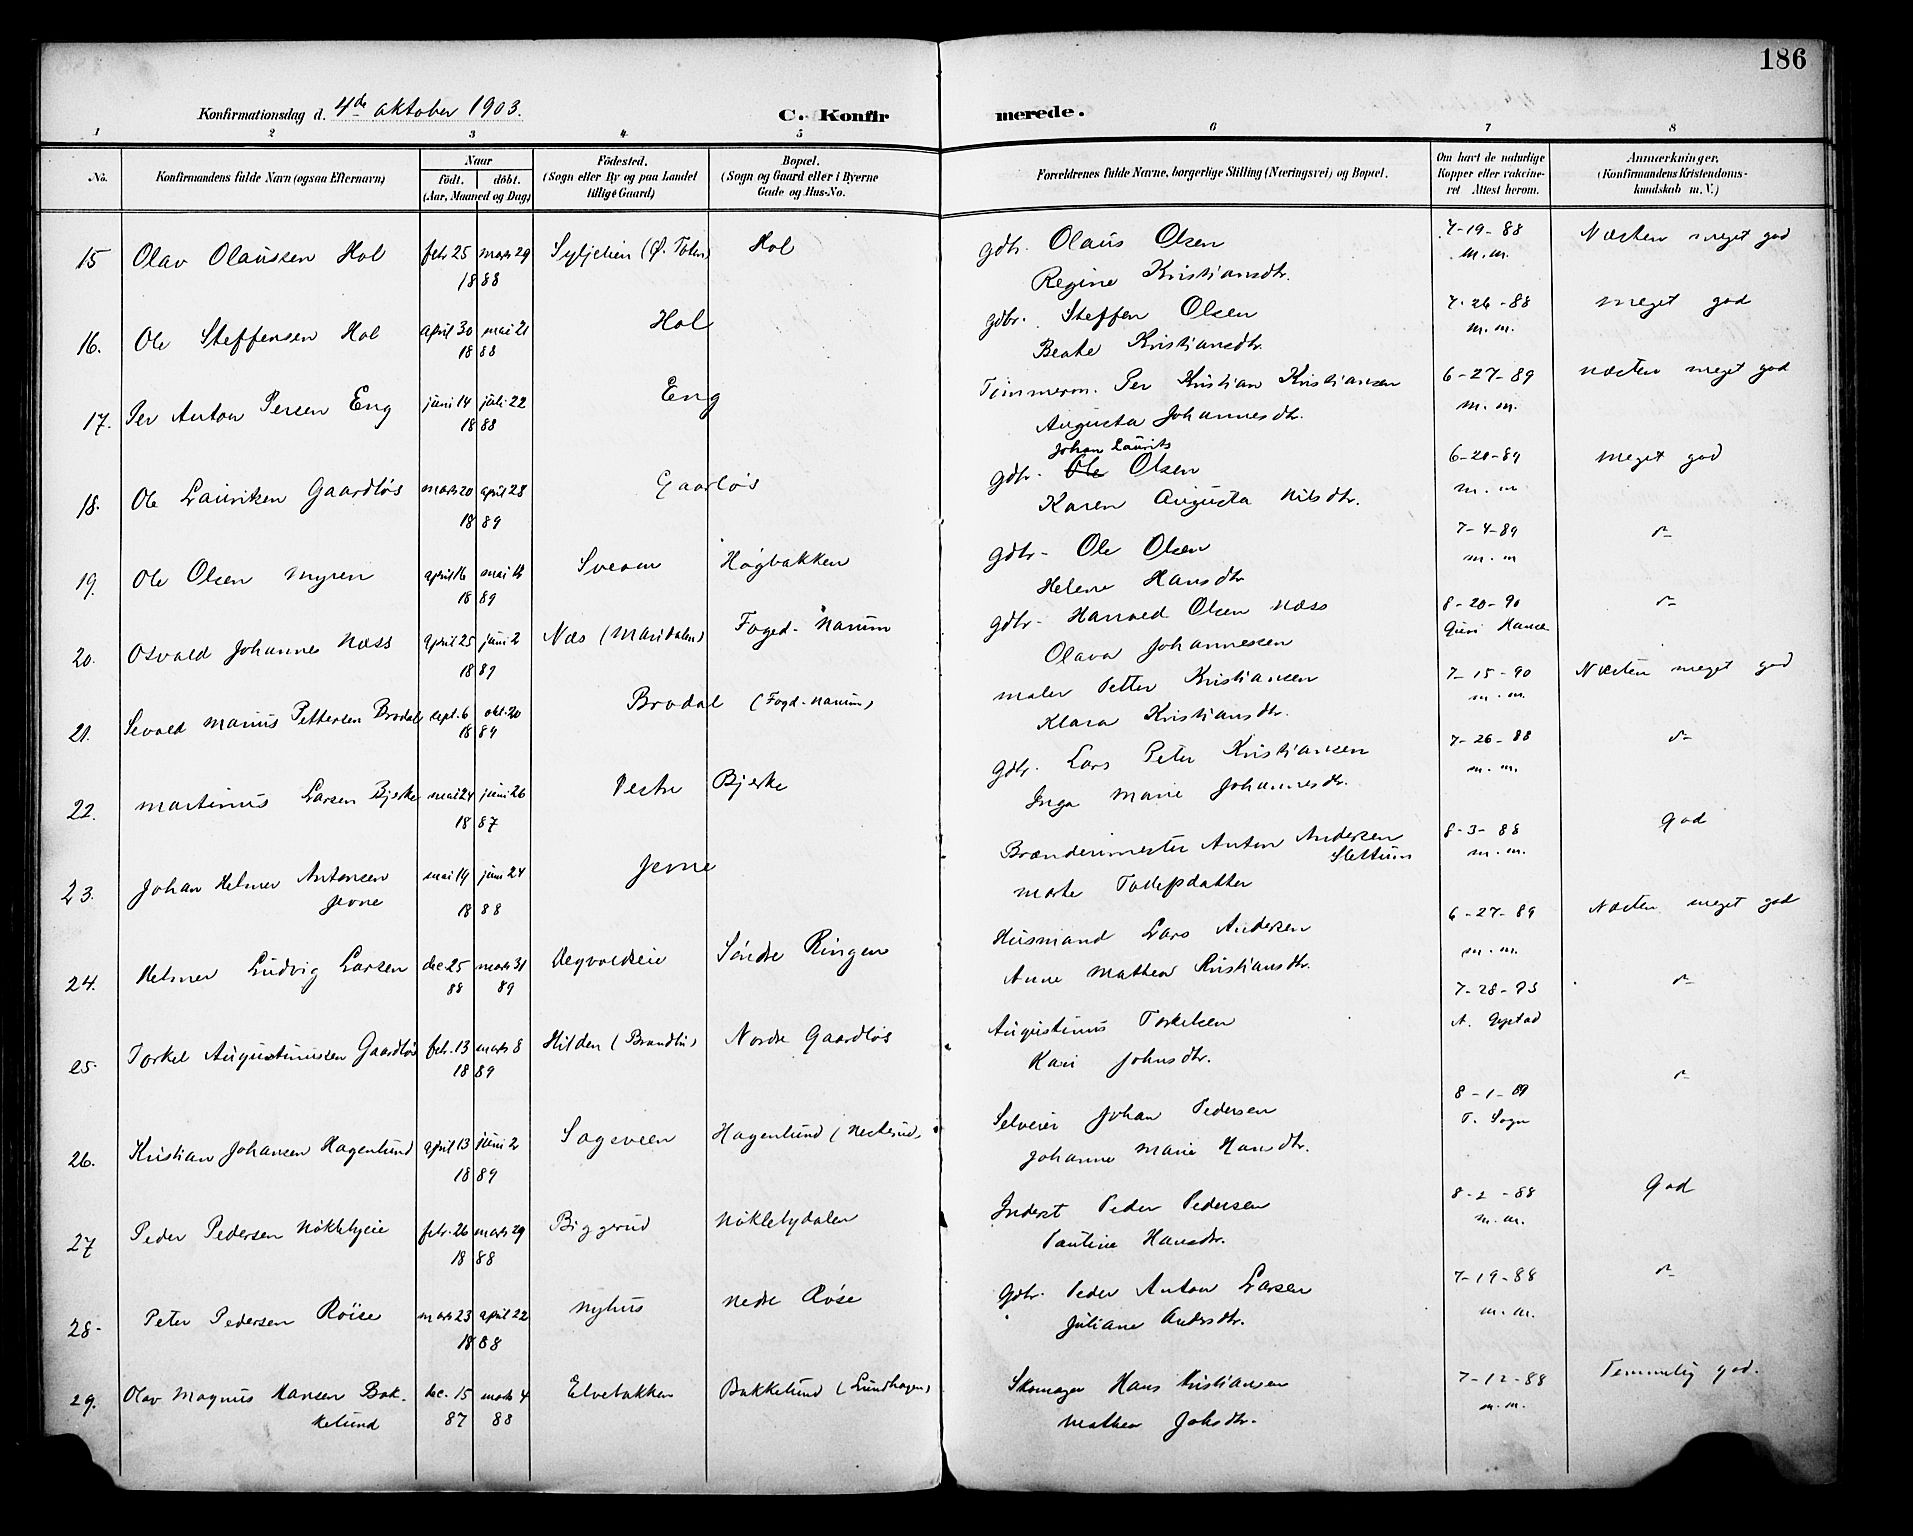 186
Konfirmationsdag d. 4de oktober 1903. C. Konfirmerede.
1 2 3 4 5 6 7 8
No. Konfirmandens fulde Navn (ogsaa Efternavn) Naar født. døbt. (Aar, Maaned og Dag) Fødested. (Sogn eller By og paa Landet tillige Gaard) Bopæl. (Sogn og Gaard eller i Byerne Gade og Hus-No. Forældrenes fulde Navne, borgerlige Stilling (Næringsvei) og Bopæl. Om havt de naturlige Kopper eller vaccineret Attest herom. Anmærkninger. (Konfirmandens Kristendomskundskab m. V.)
15 Olav Olaussen Hol febr 25 mars 29 1888 (Ø. Toten) Hol gdbr. Olaus Olsen 7-19-88 Næsten meget god
Regine Kristiansdtr. m.m.
16. Ole Steffensen Hol april 30 mai 21 1888 Hol gdbr. Steffen Olsen 7-26-88 meget god
Beate Kristiansdtr. m.m.
17. Per Anton Persen Eng juni 14 juli 22 1888 Eng Tømmerm. Per Kristian Kristiansen 6-27-89 næsten meget god
Augusta Johannesdtr. m.m.
18. Ole Lauritsen Gaardløs mars 20 april 28 1889 Gaarløs gdbr. Johan Laurits Ole Olsen 6-20-89 meget god
Karen Augusta Nilsdtr. m.m
19. Ole Olsen Myren april 16 mai 19 1889 Sveom Høgbakken gdbr. Ole Olsen 7-4-89 d-
Helene Hansdtr m.m
20. Osvald Johannes Næss april 25 juni 2 1889 Næs (Maridalen) Foged-Narum gdbr. Hanvald Olsen Næss 8-20-90 d-
Olava Johannessen Guri Hansen
21. Sevald Marius Pettersen Brodal sept. 6 okt. 20 1889 Brodal (Fogd-Narum) maler Petter Kristiansen 7-15-90 Næsten meget god
Klara Kristiansdtr. m.m.
22. Martinius Larsen Bjerke mai 24 juni 26 1887 Vestre Bjerke Gdbr. Lars Peter Kristiansen 7-26-88 d-
Inga Marie Johannesdtr. m.m.
23. Johan Helmer Antonsen Jevne mai 19 juni 24 1888 Jevne Brænderimester Anton Andersen Slettum 8-3-88 God
Marte m.m.
24. Helmer Ludvig Larsen dec 25 88 mars 31 89 Søndre Ringen Husmand Lars Andersen 6-27-89 Næsten meget god
Anne Mathea Kristiansdtr. m.m.
25. Torkel Augustinussen Gaardløs febr. 13 mars 8 1889 Hilden (Brandbu) Nordre Gaardløs Augustinus Torkelsen 7-28-93 d-
Kari Johnsdtr.
26. Kristian Johansen Hagenlund april 13 juni 2 1889 Sagveien Hagenlund Selveier Johan Pedersen 8-1-89 d-
Johanne Marie Hansdtr. T. Sogn
27 Peder Pedersen Nøklebyeie febr. 26 mars 29 1888 Biggerud Nøklebydalen Inderst Peder Pedersen 8-2-88 God
Pauline Hansdtr. m.m.
28. Peter Pedersen Røise mars 23 april 22 1888 Nyhus Nedre Røse Gdbr. Peder Anton Larsen 7-19-88 d-
Juliane Andersdtr. m.m.
29. Olav Magnus Hansen Bakkelund dec. 15 87 mars 4 88 Elvebakken Bakkelund (Lundhagen) Skomager Hans Kristiansen 7-12-88 Temmelig god.
Mathea Johsdtr. m.m.